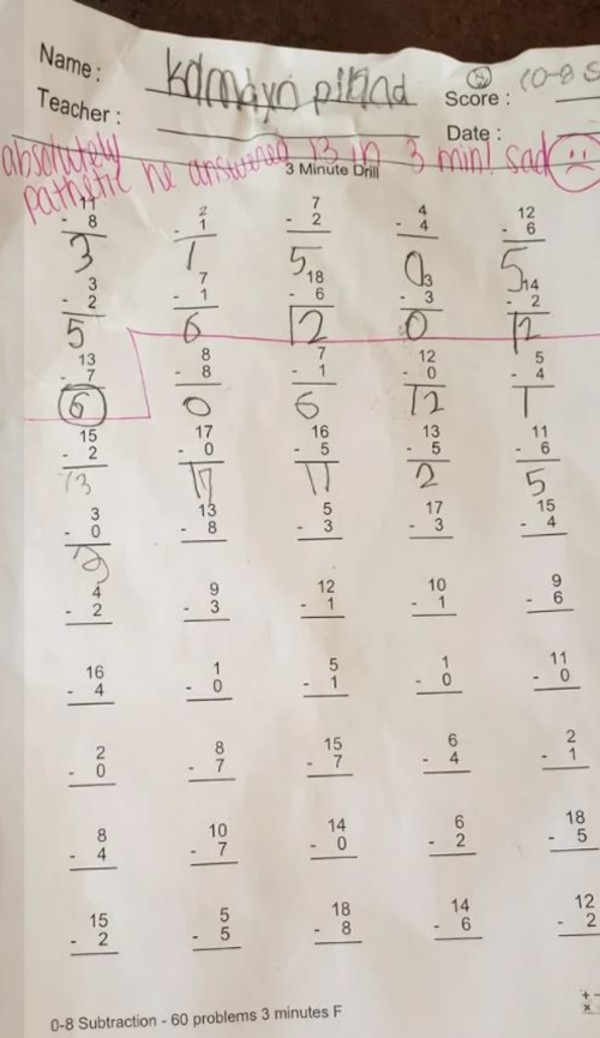 Name :
Teacher :
Score : (0-8 S
Date :
absolutely
pathetic he answered 13 in 3 min! sad
3 Minute Drill
11 2 7 4 12
- 8 - 1 - 2 - 4 - 6
3 1 5 0 5
3 7 18 3 14
- 2 - 1 - 6 - 3 - 2
5 6 12 0 12
13 8 7 12 5
- 7 - 8 - 1 - 0 - 4
6 0 6 12 1
15 17 16 13 11
- 2 - 0 - 5 - 5 - 6
13 17 11 2 5
3 13 5 17 15
- 0 - 8 - 3 - 3 - 4
4 9 12 10 9
- 2 - 3 - 1 - 1 - 6
16 1 5 1 11
- 4 - 0 - 1 - 0 - 0
2 8 15 6 2
- 0 - 7 - 7 - 4 - 1
8 10 14 6 18
- 4 - 7 - 0 - 2 - 5
15 5 18 14 12
- 2 - 5 - 8 - 6 - 2
0-8 Subtraction - 60 problems 3 minutes F